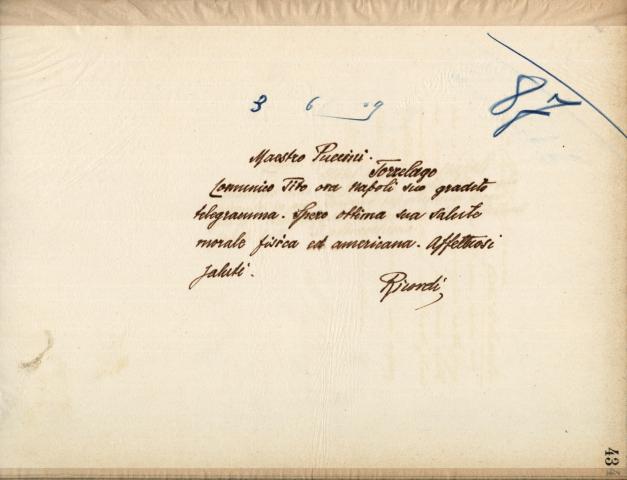 87
3 6 9
Maestro Puccini.
Torrelago
Comunico Tito ora Napoli suo gradito
telegramma. Spero ottima sua salute
morale fisica ed americana. Affettuosi
saluti.
Ricordi
43